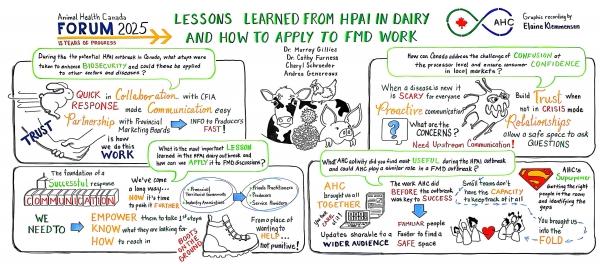 Animal Health Canada
FORUM 2025
15 YEARS OF PROGRESS
LESSONS LEARNED FROM HPAI IN DAIRY
AND HOW TO APPLY TO FMD WORK
AHC
Graphic recording by
Elaine Klemmensen
Dr. Murray Gillies
Dr. Cathy Furness
Cheryl Schroeder
Andrea Genereaux
During the potential HPAI outbreak in Canada, what steps were
taken to enhance BIOSECURITY and could these be applied
to other sectors and diseases?
QUICK in Collaboration with CFIA
RESPONSE made Communication easy
Partnership with Provincial
Marketing Boards
INFO to Producers
FAST!
TRUST
is how
we do this
WORK
How can Canada address the challenge of CONFUSION at
the processor level and ensure consumer CONFIDENCE
in local markets?
When a disease is new it
is SCARY for everyone
Proactive communication
What are the
CONCERNS?
Need Upstream Communication!
Build Trust
when
not in CRISIS mode
Relationships
allow a safe space to ask
QUESTIONS
What is the most important LESSON
learned in the HPAI dairy outbreak and
how can we APPLY it to FMD discussions?
The foundation of a
Successful response
COMMUNICATION
We've come
a long way...
NOW it's time
to push it further
Provincial
Territorial Governments
Industry Associations
Private Practitioners
Producers
Service Providers
WE
NEED TO
EMPOWER them to take 1st steps
KNOW what they are looking for
HOW to reach in
BOOTS
ON THE
GROUND
From a place of
wanting to
HELP...
not punitive!
What AHC activity did you find most USEFUL during the HPAI outbreak
and could AHC play a similar role in a FMD outbreak?
AHC
brought us all
TOGETHER
Updates sharable to a
WIDER AUDIENCE
The work AHC did
BEFORE the outbreak
was key to SUCCESS
FAMILIAR people
Faster to find a
SAFE space
Small teams don't
have the CAPACITY
to keep track of it all
AHC's
Superpower
Getting the right
people in the room
and identifying
the gaps
You brought us...
into the
FOLD